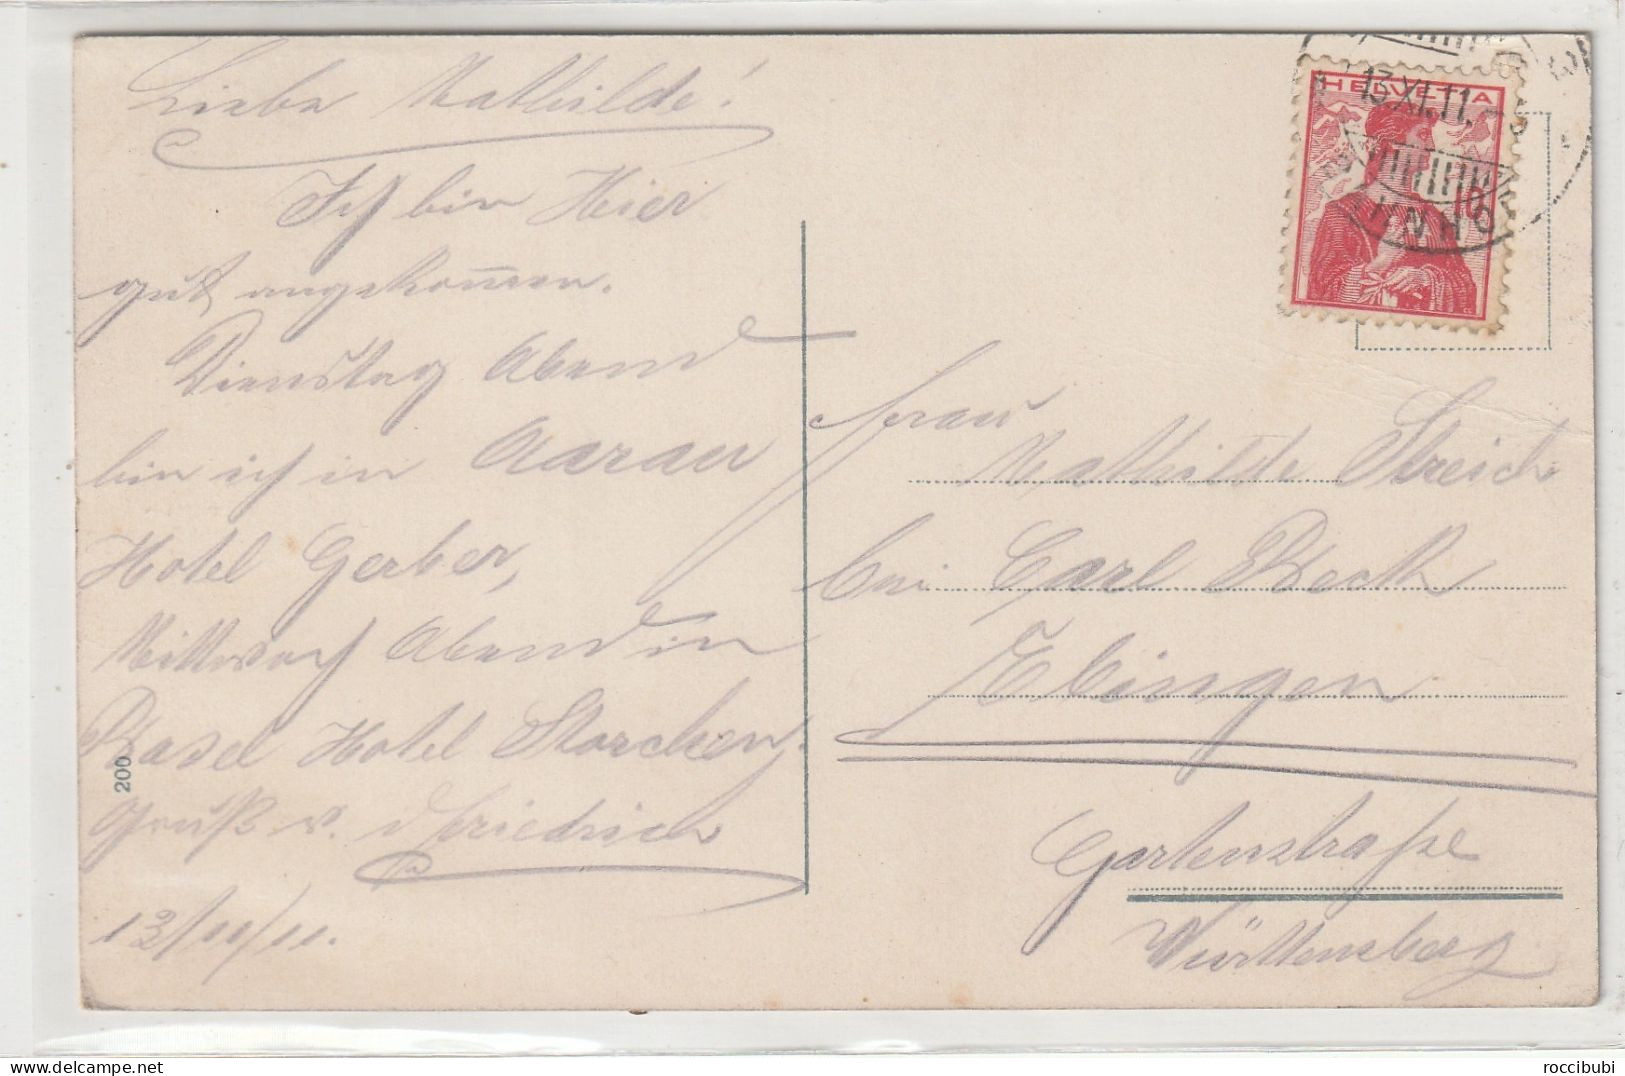 Liebe Mathilde!
Ich bin Hier
gut angekom̅en.
Dienstag Abend
bin ich in Aarau
Hotel Gerber,
Mittwoch Abend in
Basel Hotel Storchen,
Gruß v. Friedrich
13/11/11.
200
HELVETIA
10
13.XI.11.-5
Frau
Mathilde Streich
bei Carl Beck
Ebingen
Gartenstraße
Württemberg
roccibubi